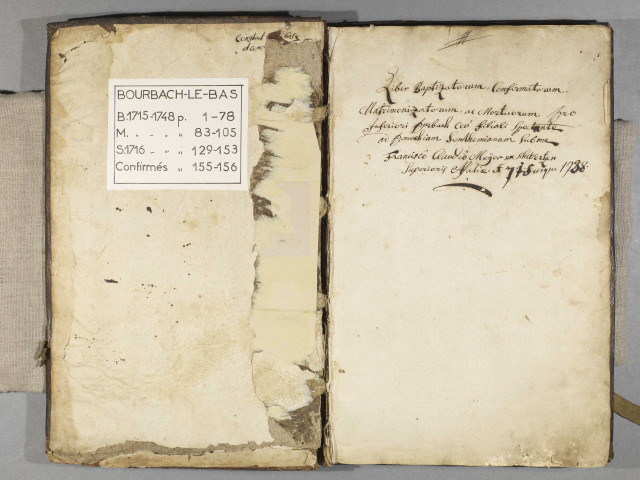 BOURBACH-LE-BAS
B.1715-1748 p. 1-78
M. - - „ 83-105
S.1716 - „ „ 129-153
Confirmés „ 155-156
Liber Baptizatorum Confirmatorum
Matrimonizatorum ac Mortuorum Pro
Inferiori Burbach ceu filiali Spectante
ad Parochiam Sentheimanam sub me
Francisco Claudio Meyer ex
Superioris 1738